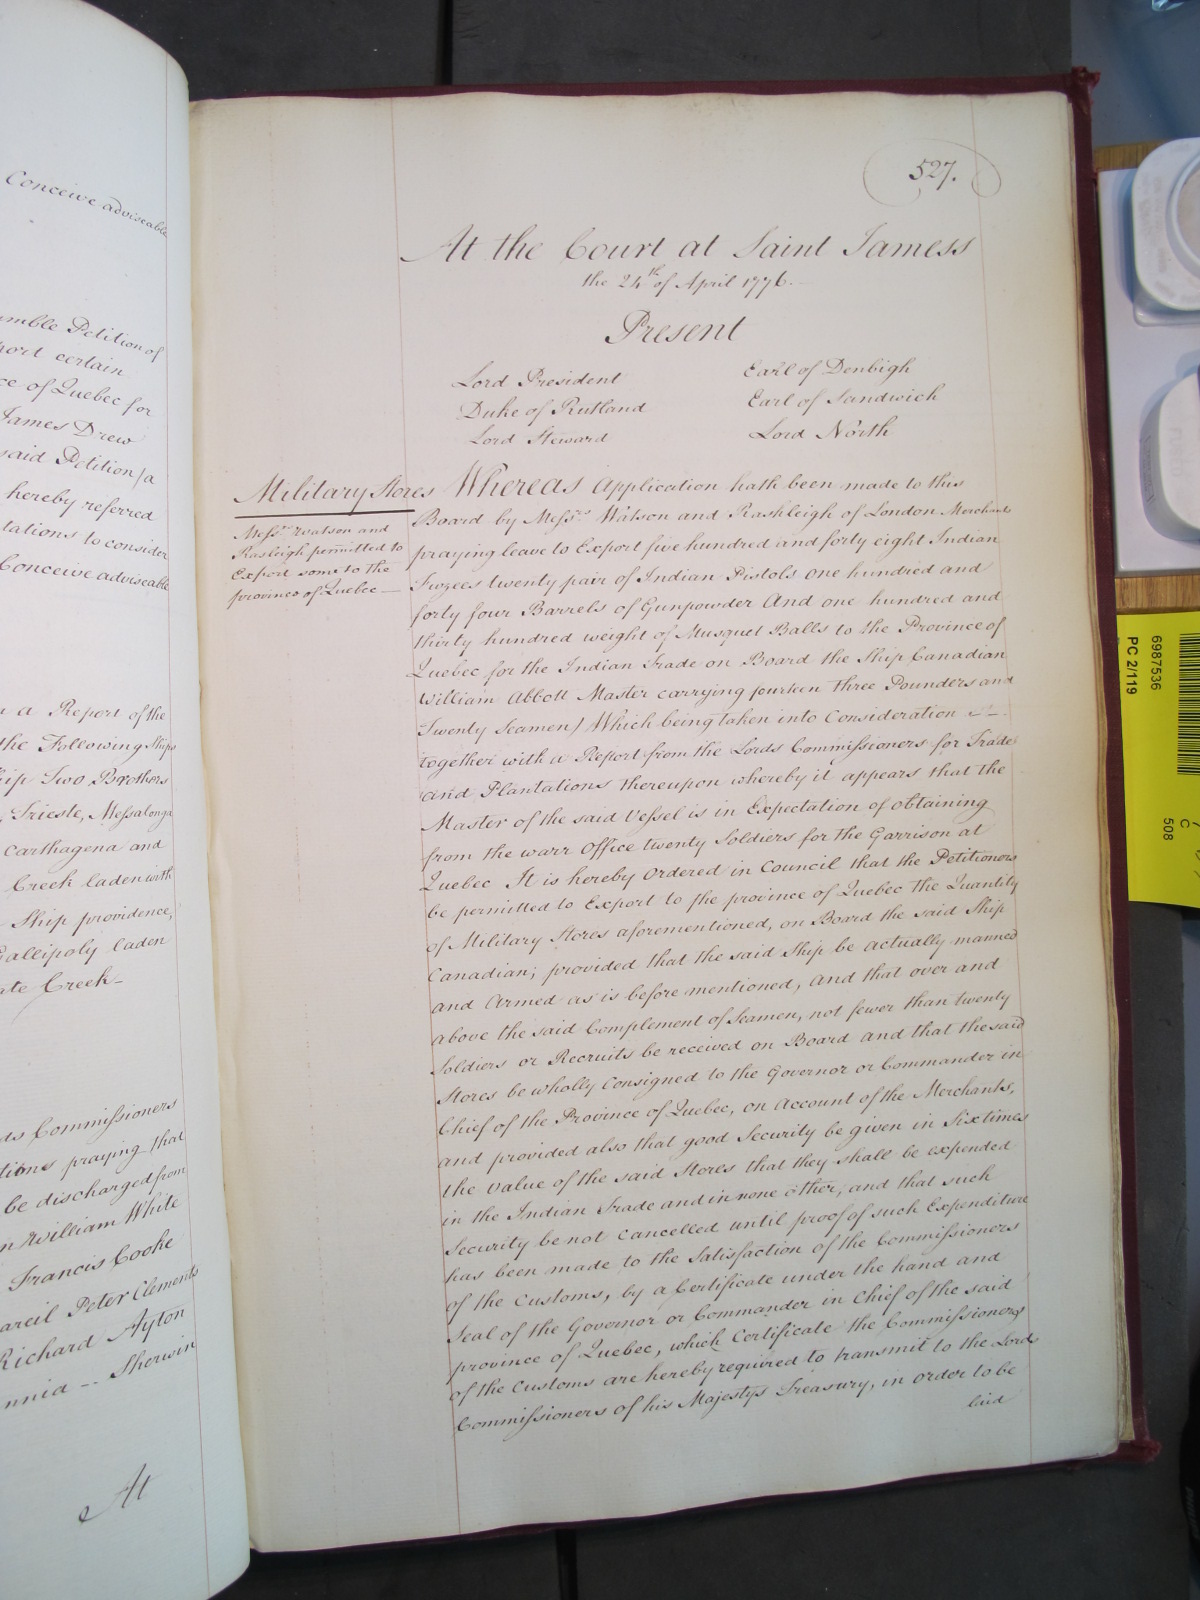 Conceive adviseable
Petition of
certain
of Quebec for
James Drew
said Petition/a
hereby referred
to consider
Conceive adviseable
a Report of the
the Following Ships
Two Brothers
Trieste, Messalonga
Carthagena and
Creek laden with
Ship providence,
Gallipoly laden
Creek-
Commissioners
praying that
be discharged from
William White
Francis Cooke
Peter Clements
Richard Ayton
Sherwin
At
527.
At the Court at Saint Jamess
the 24th of April 1776.
Present
Lord President
Duke of Rutland
Lord Steward
Earl of Denbigh
Earl of Sandwich
Lord North
Military Stores
Messrs. Watson and
Rasleigh permitted to
Export some to the
province of Quebec
Whereas Application hath been made to this
Board by Messrs. Watson and Rashleigh of London Merchants
praying leave to Export five hundred and forty eight Indian
Fuzees twenty pair of Indian Pistols one hundred and
forty four Barrels of Gunpowder And one hundred and
thirty hundred weight of Musquet Balls to the Province of
Quebec for the Indian Trade on Board the Ship Canadian
William Abbott Master carrying fourteen three Pounders and
Twenty Seamen/ Which being taken into Consideration
together with a Report from the Lords Commissioners for Trade
and Plantations thereupon whereby it appears that the
Master of the said Vessel is in Expectation of obtaining
from the warr Office twenty Soldiers for the Garrison at
Quebec It is hereby Ordered in Council that the Petitioners
be permitted to Export to the province of Quebec the Quantity
of Military Stores aforementioned, on Board the said Ship
Canadian; provided that the said Ship be actually manned
and Armed as is before mentioned, and that over and
above the said Complement of Seamen, not fewer than twenty
Soldiers or Recruits be received on Board and that the said
Stores be wholly Consigned to the Governor or Commander in
Chief of the Province of Quebec, on Account of the Merchants,
and provided also that good Security be given in Six times
the Value of the said Stores that they shall be expended
in the Indian Trade and in none other, and that such
Security be not Cancelled until proof of such Expenditure
has been made to the Satisfaction of the Commissioners
of the Customs, by a Certificate under the hand and
Seal of the Governor or Commander in Chief of the said
province of Quebec, which Certificate the Commissioners
of the Customs are hereby required to transmit to the Lords
Commissioners of his Majestys Treasury, in order to be
laid
6987536
PC 2/119
C
508